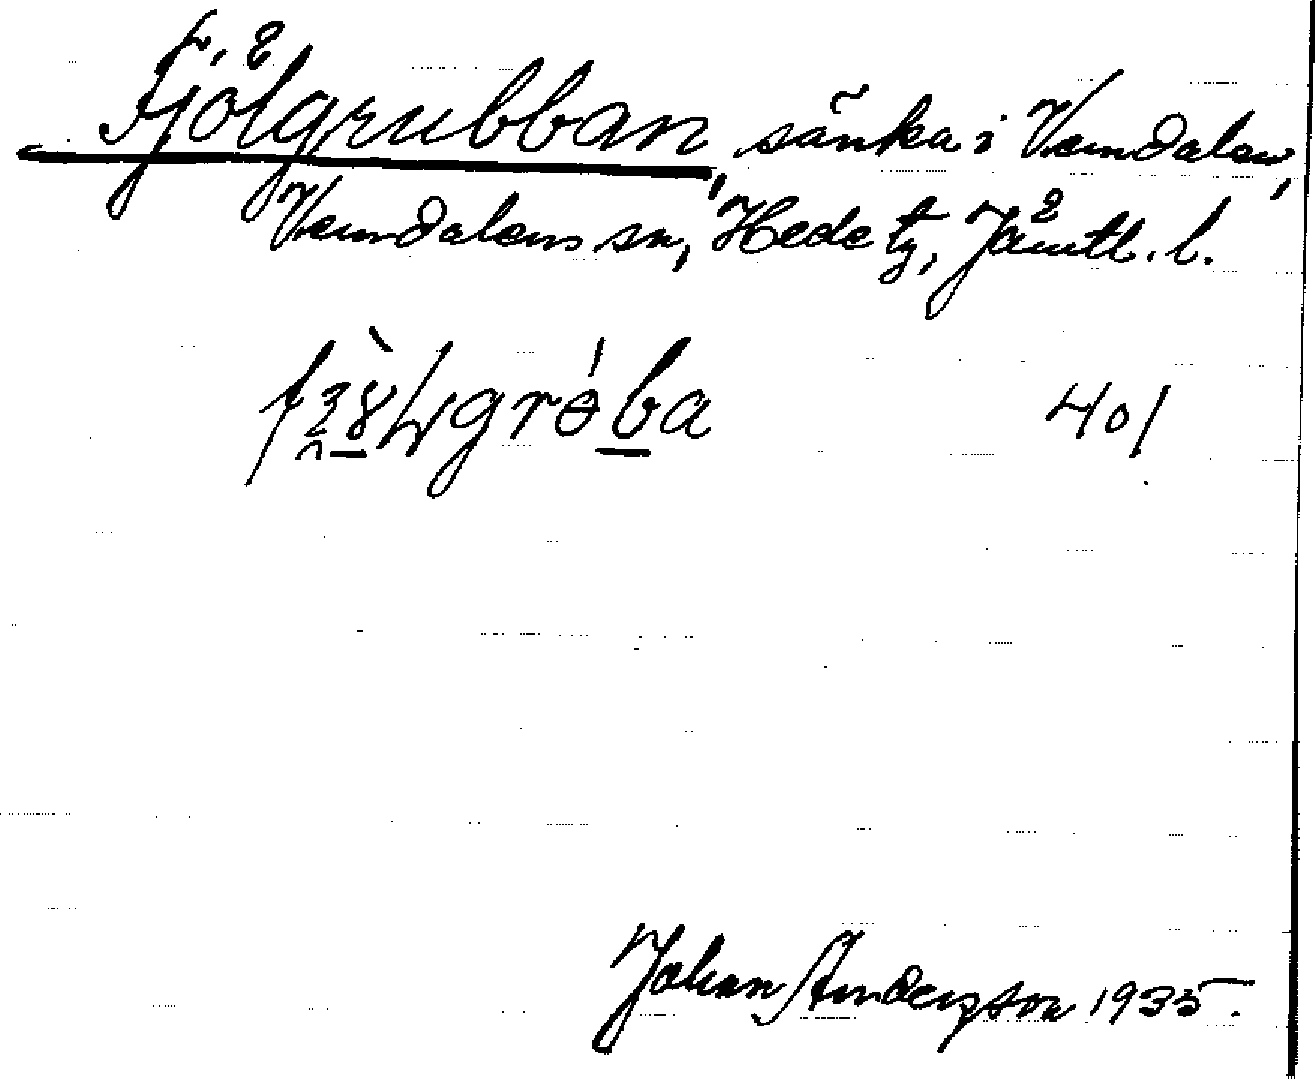 Fjölgrubban, sänka i Vemdalen,
Vemdalens sn, Hede tg, Jämtl. l.
401
Johan Anderzson 1935.